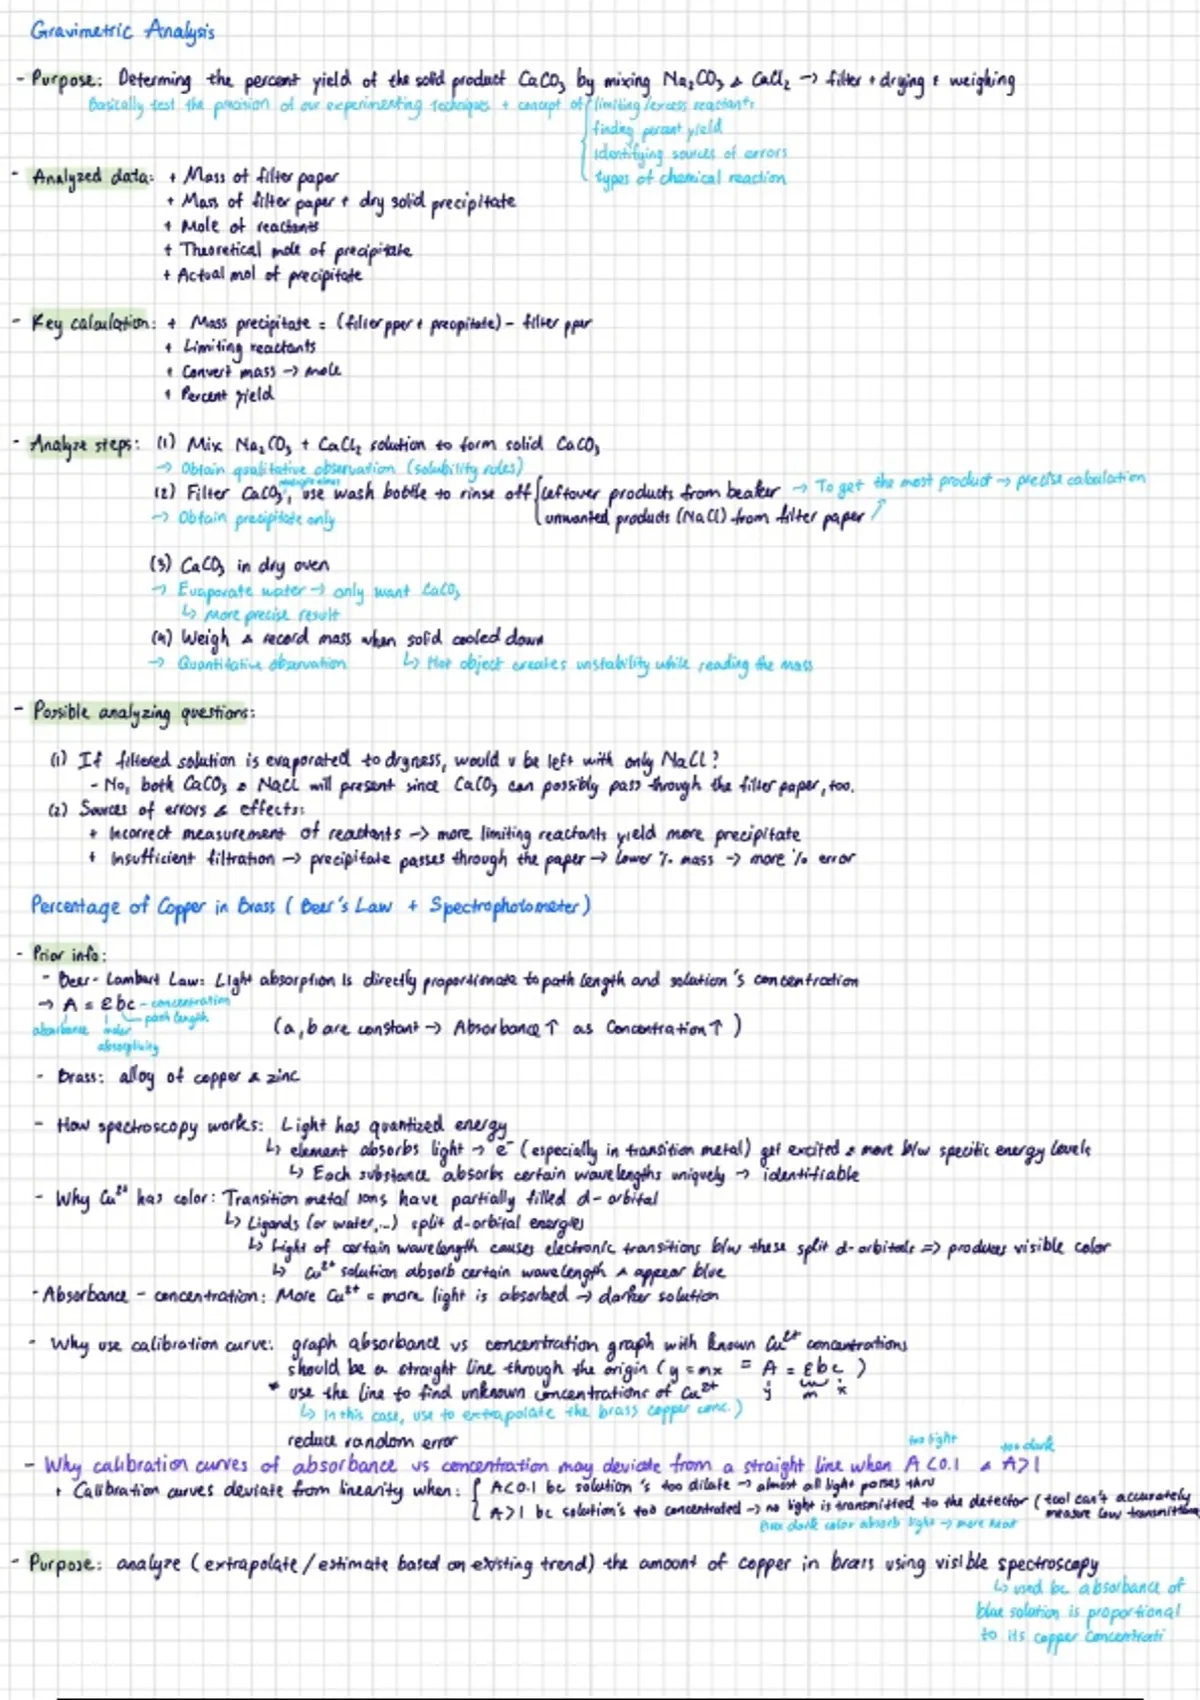 Gravimetric Analysis
- Purpose: Determing the percent yield of the solid product CaCO₃ by mixing Na₂CO₃ & CaCl₂ → filter + drying + weighing
Basically test the precision of our experimenting techniques + concept of { limiting/excess reactants
finding percent yield
identifying sources of errors
types of chemical reaction
- Analyzed data: + Mass of filter paper
+ Mass of filter paper + dry solid precipitate
+ Mole of reactants
+ Theoretical mole of precipitate
+ Actual mol of precipitate
- Key calculation: + Mass precipitate = (filter pper + precpitate) - filter pper
+ Limiting reactants
+ Convert mass → mole
+ Percent yield
- Analyze steps: (1) Mix Na₂CO₃ + CaCl₂ solution to form solid CaCO₃
→ Obtain qualitative observation (solubility rules)
(2) Filter CaCO₃, use wash bottle to rinse off { leftover products from beaker → To get the most product → precise calculation
→ Obtain precipitate only
unwanted products (NaCl) from filter paper
(3) CaCO₃ in dry oven
→ Evaporate water → only want CaCO₃
↳ more precise result
(4) Weigh & record mass when solid cooled down
→ Quantitative observation ↳ Hot object creates unstability while reading the mass
- Possible analyzing questions:
(1) If filtered solution is evaporated to dryness, would u be left with only NaCl?
- No, both CaCO₃ & NaCl will present since CaCO₃ can possibly pass through the filter paper, too.
(2) Sources of errors & effects:
+ Incorrect measurement of reactants → more limiting reactants yield more precipitate
+ Insufficient filtration → precipitate passes through the paper → lower % mass → more % error
Percentage of Copper in Brass (Beer's Law + Spectrophotometer)
- Prior info:
- Beer-Lambert Law: Light absorption is directly proportionate to path length and solution's concentration
→ A = εbc - concentration
path length
absorbance molar
absorptivity
(a, b are constant → Absorbance ↑ as Concentration ↑ )
- Brass: alloy of copper & zinc
- How spectroscopy works: Light has quantized energy
↳ element absorbs light → e⁻ (especially in transition metal) get excited & move b/w specific energy levels
↳ Each substance absorbs certain wavelengths uniquely → identifiable
- Why Cu²⁺ has color: Transition metal ions have partially filled d-orbital
↳ Ligands (or water,...) split d-orbital energies
↳ Light of certain wavelength causes electronic transitions b/w these split d-orbitals => produces visible color
↳ Cu²⁺ solution absorb certain wavelength & appear blue
- Absorbance - concentration: More Cu²⁺ = more light is absorbed → darker solution
- Why use calibration curve: graph absorbance vs concentration graph with known Cu²⁺ concentrations
should be a straight line through the origin (y = mx = A = εbc )
y m x
* use the line to find unknown concentrations of Cu²⁺
↳ In this case, use to extrapolate the brass copper conc.)
reduce random error
too light too dark
- Why calibration curves of absorbance vs concentration may deviate from a straight line when A<0.1 & A>1
+ Calibration curves deviate from linearity when: { A<0.1 bc solution's too dilute → almost all light passes thru
A>1 bc solution's too concentrated → no light is transmitted to the detector (tool can't accurately
measure low transmittan
dark color absorb light → more heat
- Purpose: analyze (extrapolate/estimate based on existing trend) the amount of copper in brass using visible spectroscopy
↳ used bc absorbance of
blue solution is proportional
to its copper concentrati